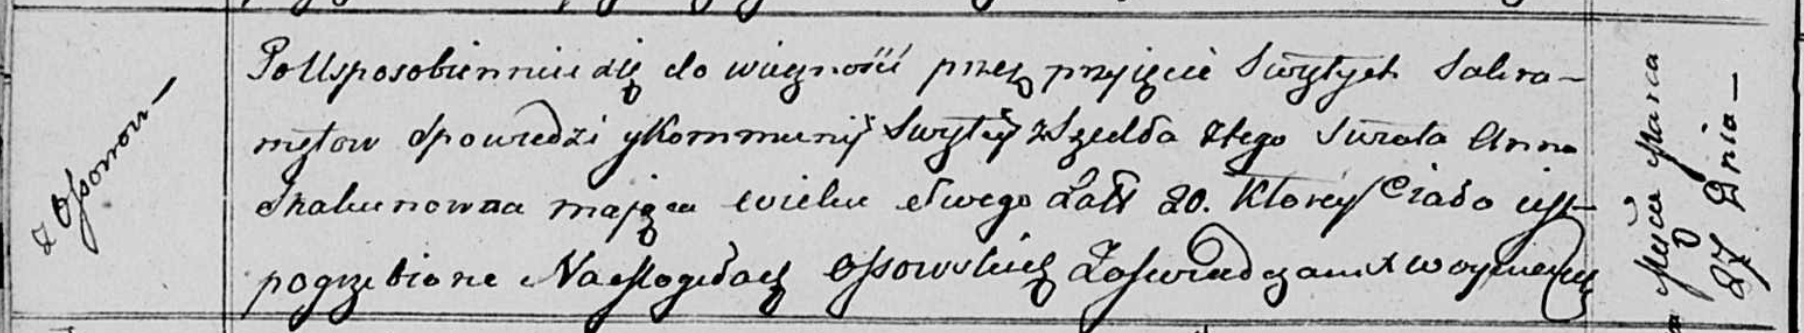 z Ossowa
Po Usposobienniu się do wieczności przez przyięcie Swzytych Sakra-
mętow Spowiedzi y Kommunij Swzytey z Szedła z tego Swiata Anna
Skakunowna maiąca wieku swego Latt 20. Ktorey Ciało iest
pogrzebione Na Mogiłach Ossowskich Zaswiadczam X
Mięca Marca
27 Dnia